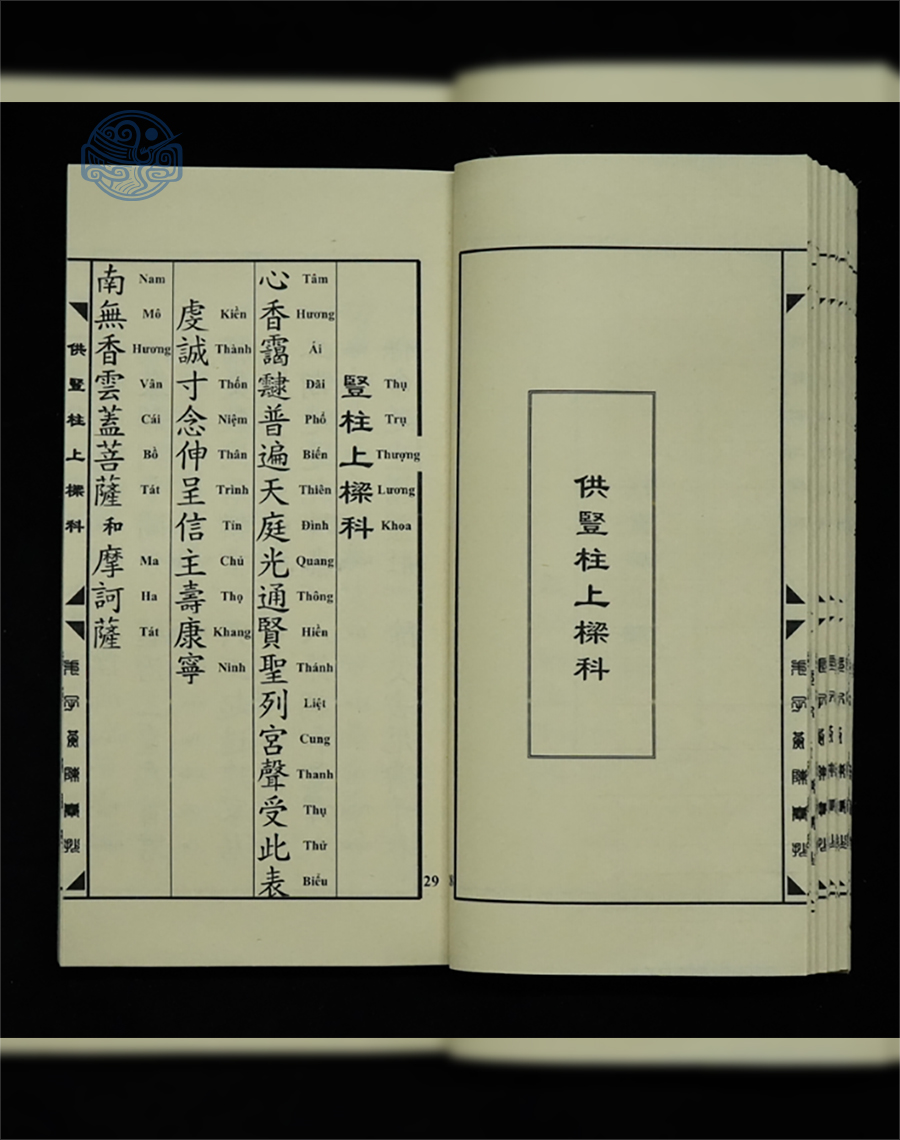 供豎柱上樑科
豎柱上樑科
Thụ Trụ Thượng Lương Khoa
心香靄靆普遍天庭光通賢聖列宮聲受此表
Tâm Hương Ái Dãi Phổ Biến Thiên Đình Quang Thông Hiền Thánh Liệt Cung Thanh Thụ Thử Biểu
虔誠寸念伸呈信主壽康寧
Kiền Thành Thốn Niệm Thân Trình Tín Chủ Thọ Khang Ninh
南無香雲蓋菩薩和摩訶薩
Nam Mô Hương Vân Cái Bồ Tát Ma Ha Tát
供豎柱上樑科
29